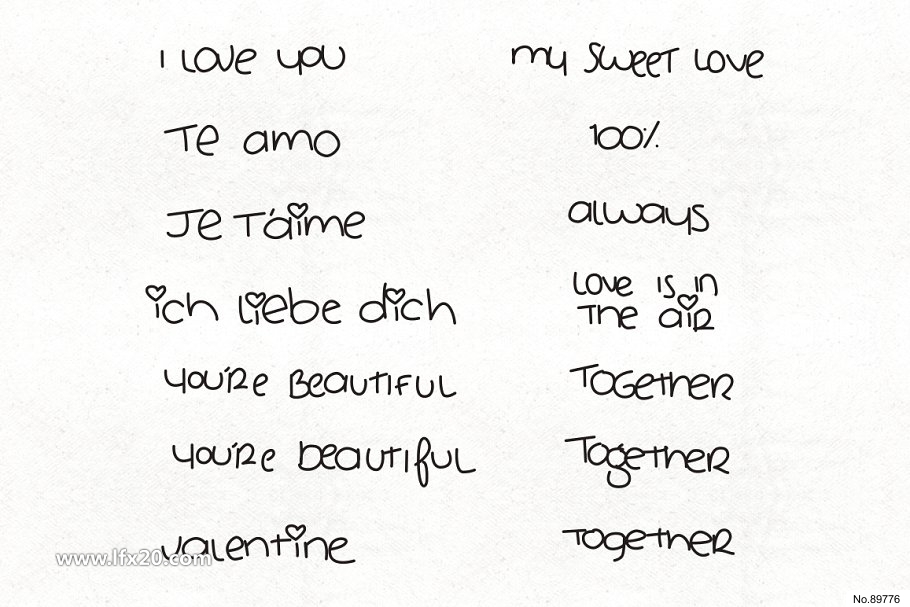 I Love you
Te amo
Je T'aime
ich liebe dich
you're Beautiful
you're beautiful
valentine
my sweet love
100%
always
Love is in
The air
ToGether
Together
together
www.lfx20.com
No.89776